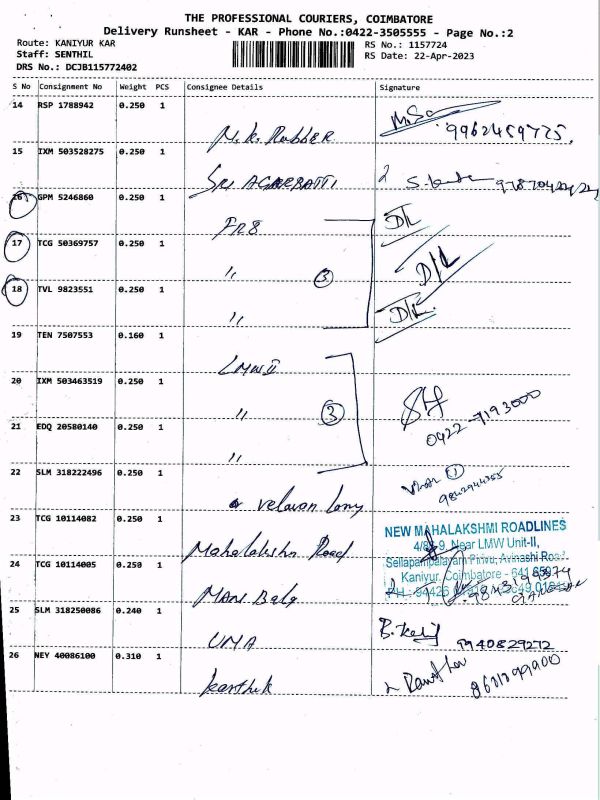 THE PROFESSIONAL COURIERS, COIMBATORE
Delivery Runsheet - KAR - Phone No.:0422-3505555 - Page No.:2
Route: KANIYUR KAR
Staff: SENTHIL
DRS No.: DCJB115772402
RS No.: 1157724
RS Date: 22-Apr-2023
S No Consignment No Weight PCS Consignee Details Signature
14 RSP 1788942 0.250 1
M.K. Rubber 9962459775.
15 IXM 503528275 0.250 1
SRI AGARBATTI
16 GPM 5246860 0.250 1
FR8 D/L
17 TCG 50369757 0.250 1
" 3 D/L
18 TVL 9823551 0.250 1
" D/L
19 TEN 7507553 0.160 1
LMW II
20 IXM 503463519 0.250 1
" 3
0422-7193000
21 EDQ 20580140 0.250 1
"
22 SLM 318222496 0.250 1
velavan lorry
23 TCG 10114082 0.250 1
Mahalakshmi Road
NEW MAHALAKSHMI ROADLINES
Near LMW Unit-II,
Sellapampalayam Pirivu, Avinashi Road
Kaniyur, Coimbatore - 641
24 TCG 10114005 0.250 1
MANI
25 SLM 318250086 0.240 1
UMA 9940829272
26 NEY 40086100 0.310 1
karthik